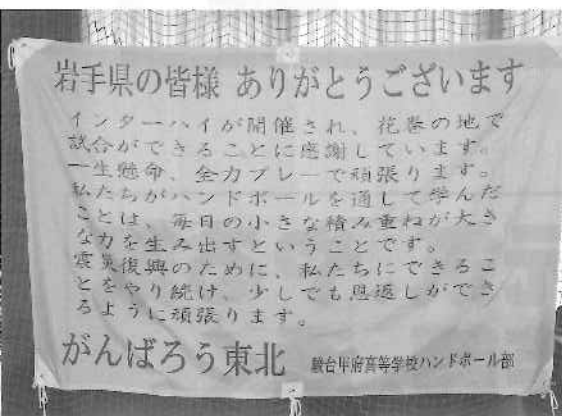 岩手県の皆様 ありがとうございます
インターハイが開催され、花巻の地で
試合ができることに感謝しています。
一生懸命、全力プレーで頑張ります。
私たちがハンドボールを通して学んだ
ことは、毎日の小さな積み重ねが大き
な力を生み出すということです。
震災復興のために、私たちにできるこ
とをやり続け、少しでも恩返しができ
るように頑張ります。
がんばろう東北 駿台甲府高等学校ハンドボール部